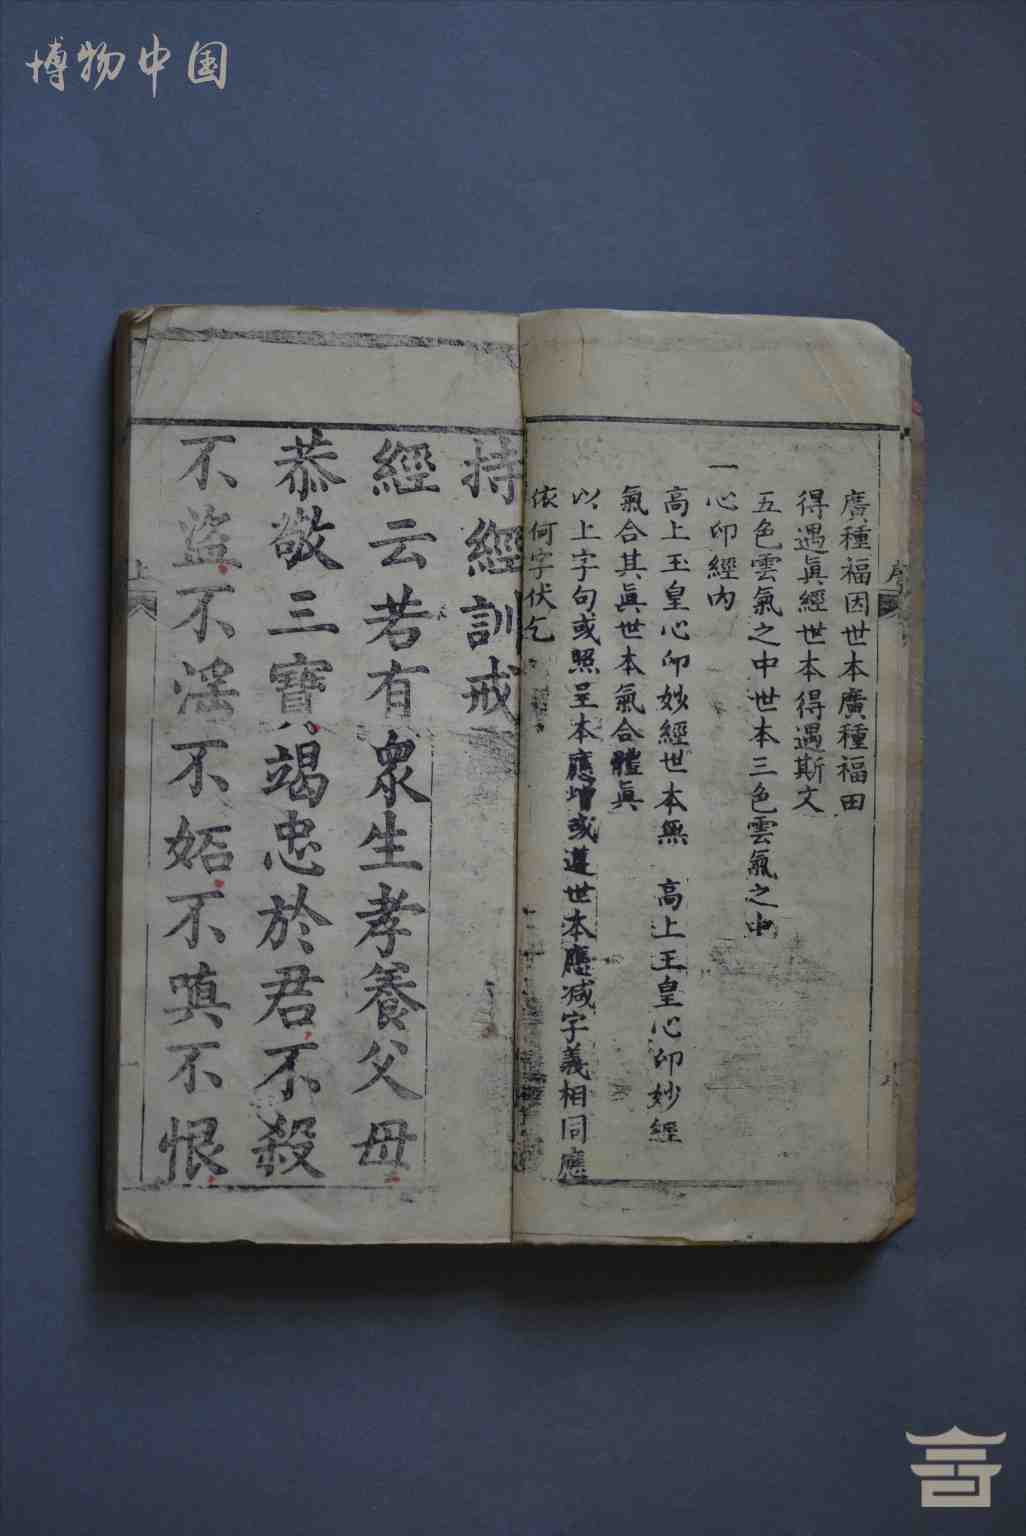 博物中国
廣種福因世本廣種福田
得遇眞經世本得遇斯文
五色雲氣之中世本三色雲氣之中
一
心印經內
高上玉皇心印妙經世本無 高上玉皇心印妙經
氣合其眞世本氣合體眞
以上字句或照呈本應增或遵世本應减字義相同應
依何字伏乞
序
持經訓戒
經云若有衆生孝養父母
恭敬三寶竭忠於君不殺
不盜不淫不妬不嗔不恨
上